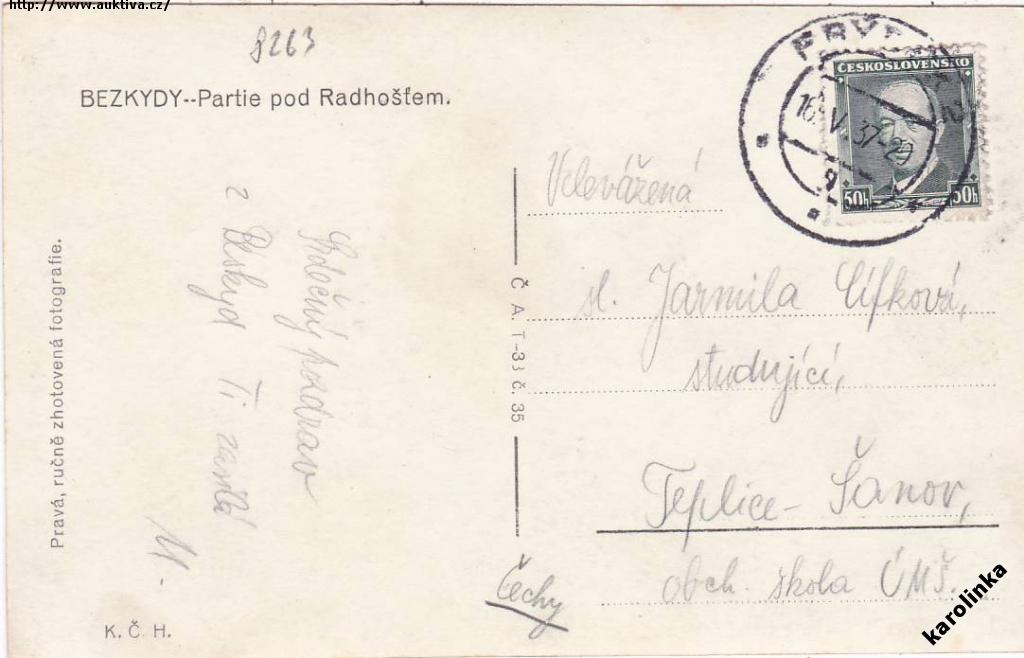 http://www.auktiva.cz/
8263
BEZKYDY--Partie pod Radhošťem.
Srdečný pozdrav
z Beskyd Ti zasílá
M-
Pravá, ručně zhotovená fotografie.
K. Č. H.
Č. A. T.-33 č. 35
ČESKOSLOVENSKO
50h 50h
16. V. 37-20
Velevážená
sl. Jarmila Cífková,
studující,
Teplice-Šanov,
obch. škola ÚMŠ.
Čechy
karolinka